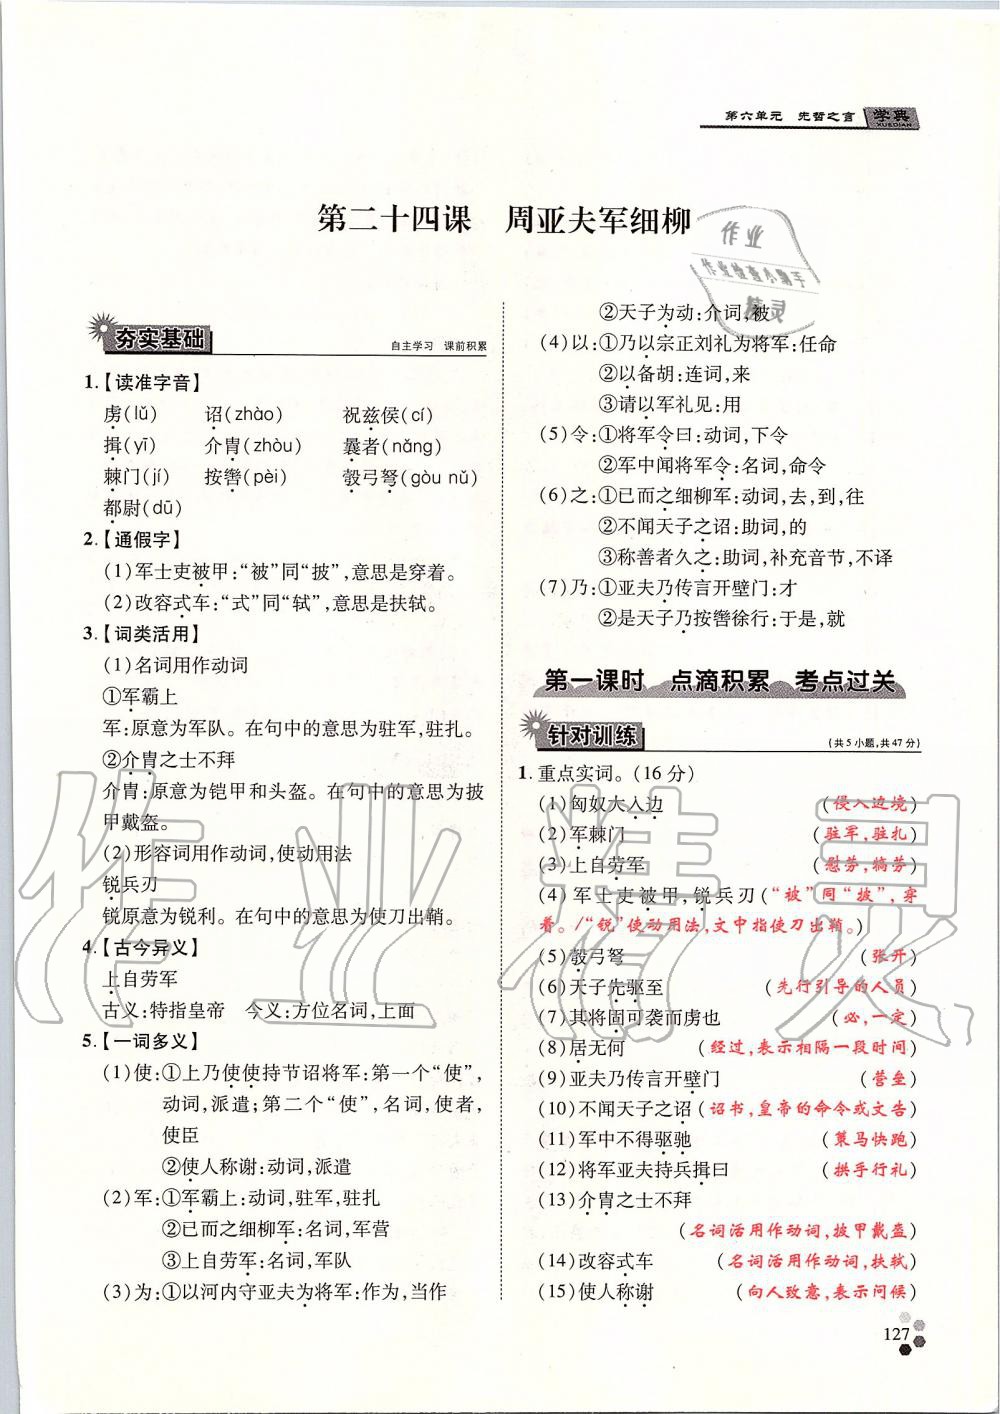 第六单元　先哲之言　学典
XUEDIAN
第二十四课　周亚夫军细柳
作业
作业检查小助手
精灵
夯实基础
自主学习　课前积累
1.【读准字音】
虏(lǔ)　诏(zhào)　祝兹侯(cí)
揖(yī)　介胄(zhòu)　曩者(nǎng)
棘门(jí)　按辔(pèi)　彀弓弩(gòu nǔ)
都尉(dū)
2.【通假字】
(1)军士吏被甲:“被”同“披”,意思是穿着。
(2)改容式车:“式”同“轼”,意思是扶轼。
3.【词类活用】
(1)名词用作动词
①军霸上
军:原意为军队。在句中的意思为驻军,驻扎。
②介胄之士不拜
介胄:原意为铠甲和头盔。在句中的意思为披
甲戴盔。
(2)形容词用作动词,使动用法
锐兵刃
锐原意为锐利。在句中的意思为使刀出鞘。
4.【古今异义】
上自劳军
古义:特指皇帝　今义:方位名词,上面
5.【一词多义】
(1)使:①上乃使使持节诏将军:第一个“使”,
动词,派遣;第二个“使”,名词,使者,
使臣
②使人称谢:动词,派遣
(2)军:①军霸上:动词,驻军,驻扎
②已而之细柳军:名词,军营
③上自劳军:名词,军队
(3)为:①以河内守亚夫为将军:作为,当作
②天子为动:介词,被
(4)以:①乃以宗正刘礼为将军:任命
②以备胡:连词,来
③请以军礼见:用
(5)令:①将军令曰:动词,下令
②军中闻将军令:名词,命令
(6)之:①已而之细柳军:动词,去,到,往
②不闻天子之诏:助词,的
③称善者久之:助词,补充音节,不译
(7)乃:①亚夫乃传言开壁门:才
②是天子乃按辔徐行:于是,就
第一课时　点滴积累　考点过关
针对训练
(共5小题,共47分)
1.重点实词。(16分)
(1)匈奴大入边　(侵入边境)
(2)军棘门　(驻军,驻扎)
(3)上自劳军　(慰劳,犒劳)
(4)军士吏被甲,锐兵刃(“被”同“披”,穿
着。/“锐”使动用法,文中指使刀出鞘。)
(5)彀弓弩　(张开)
(6)天子先驱至　(先行引导的人员)
(7)其将固可袭而虏也　(必,一定)
(8)居无何　(经过,表示相隔一段时间)
(9)亚夫乃传言开壁门　(营垒)
(10)不闻天子之诏　(诏书,皇帝的命令或文告)
(11)军中不得驱驰　(策马快跑)
(12)将军亚夫持兵揖曰　(拱手行礼)
(13)介胄之士不拜
(名词活用作动词,披甲戴盔)
(14)改容式车　(名词活用作动词,扶轼)
(15)使人称谢　(向人致意,表示问候)
作业精灵
127